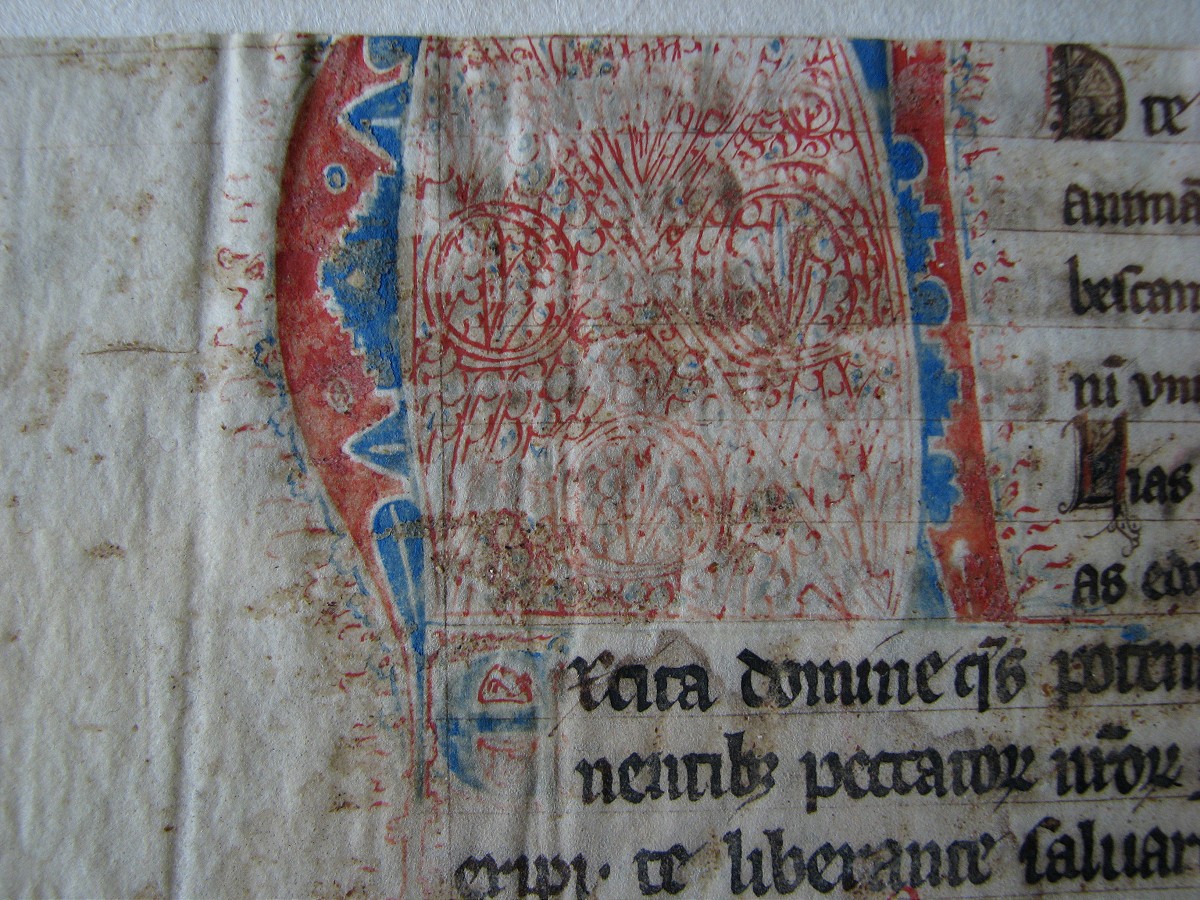 D te
animā
bescam
ni vni
Lias
as edo
Excita domine q̄s poten
nentibꝫ peccatoꝝ nr̄oꝝ
eripi· te liberante saluar